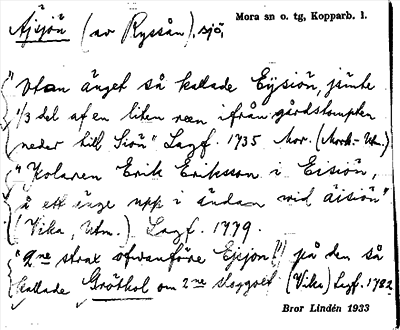 Äjsjön (av Ryssån), sjö, Mora sn o. tg, Kopparb. l.
"Utan änget så kallade Eysiön, jämte
1/3 del af en liten reen ifrån gårdstompten
neder till Siön" Lagf. 1735 Mor. (Mork.-Utm.)
"Kolaren Erik Eriksson i Eisiön,
å ett änge upp i ändan wid äisiön"
(Vika, Utm.) Lagf. 1779.
"2ne strax ofwanföre Ejsjon(!) på den så
kallade Gröthol om 2ne skyggot (Vika) Lagf. 1782
Bror Lindén 1933